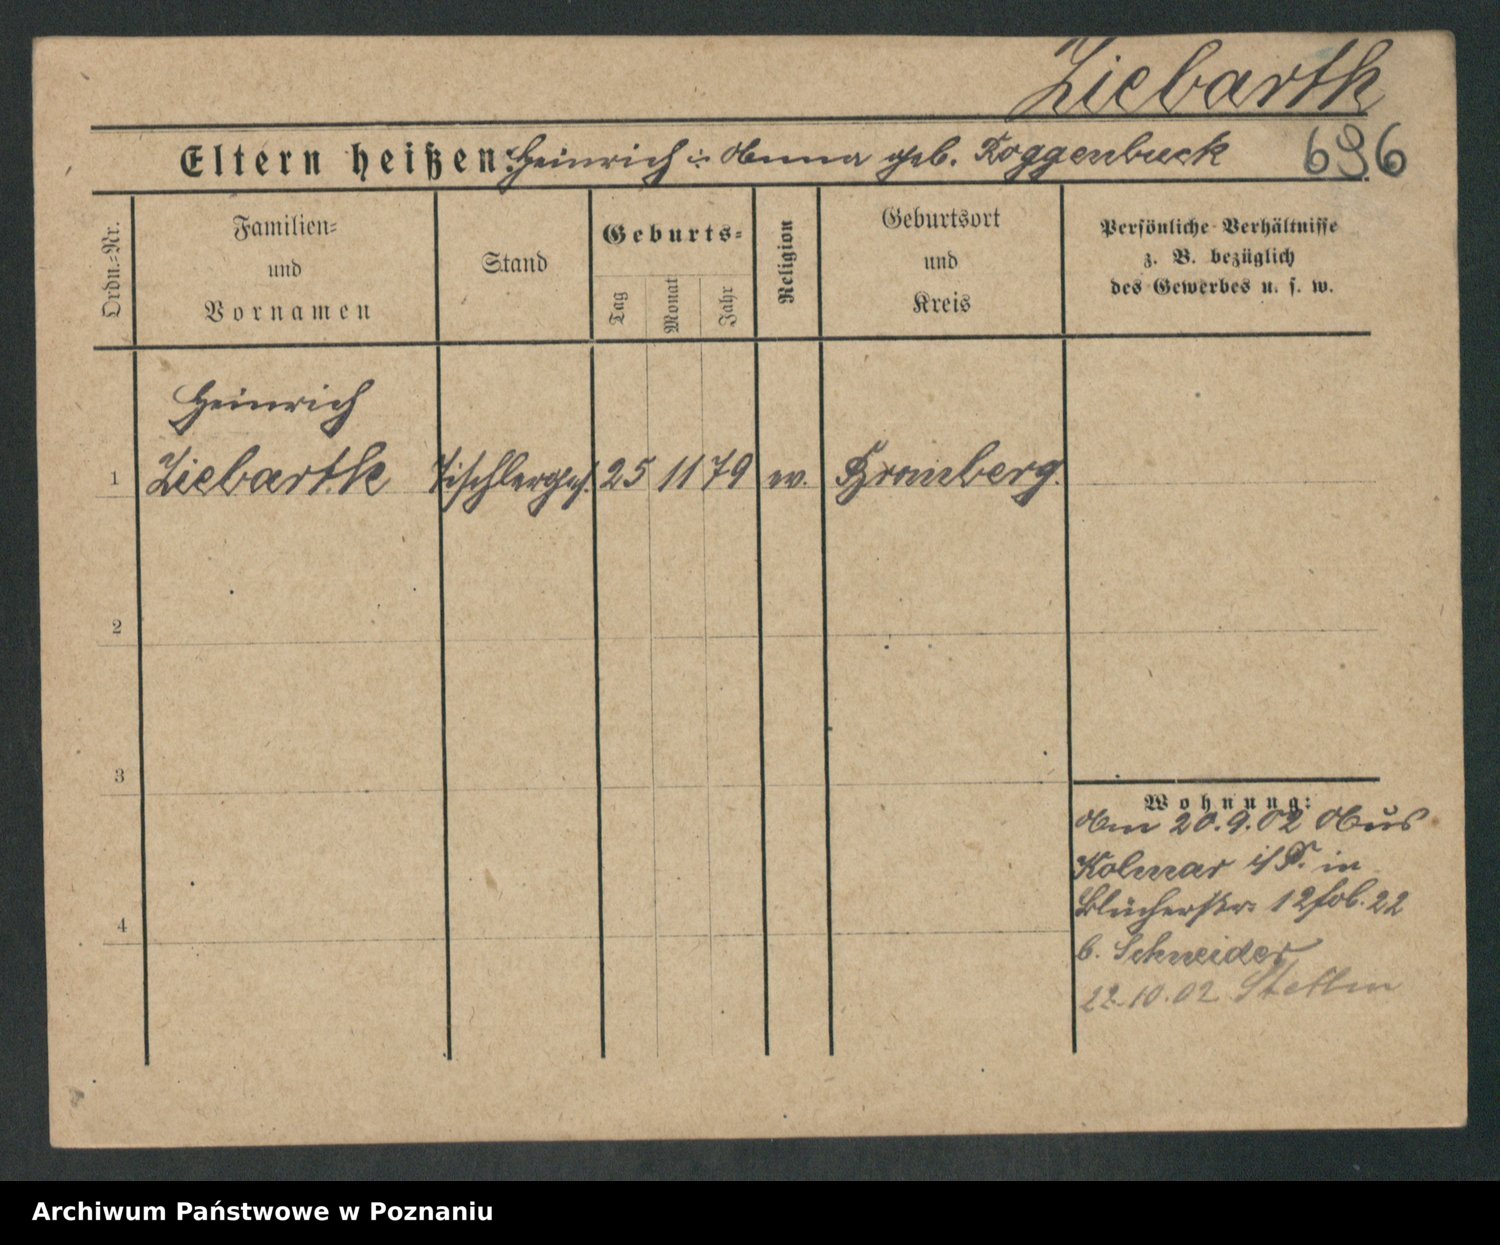 Ziebarth
Eltern heißen: Heinrich u. Anna geb. Roggenbuck 696
Ordn.=Nr.
Familien=
und
Vornamen
Stand
Geburts=
Tag
Monat
Jahr
Religion
Geburtsort
und
Kreis
Persönliche Verhältnisse
z. B. bezüglich
des Gewerbes u. s. w.
Heinrich
1 Ziebarth Tischlerges. 25 11 79 ev. Bromberg.
2
3
4
Wohnung:
Am 20.9.02 Aus
Kolmar i/P. in
Blücherstr. 12 22
b. Schneider
22.10.02 Stettin
Archiwum Państwowe w Poznaniu